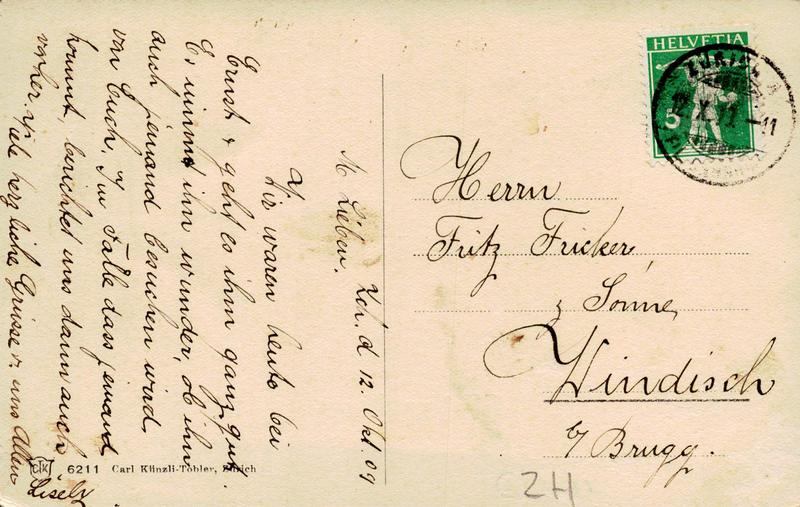 Zch. d 12. Okt. 09
M Lieben.
Wir waren heute bei
Ernst & geht es ihm ganz gut.
Es nimmt ihn wunder, ob ihn
auch jemand besuchen wird
von Euch. Im Falle dass jemand
kommt, berichtet uns dann auch
vorher. Viele herzliche Grüsse v. uns Allen
Lisely
CTK 6211 Carl Künzli-Tobler, Zürich
HELVETIA
5
ZÜRICH
12. X. -11
Herrn
Fritz Fricker,
z Sonne,
Windisch
b/ Brugg.
ZH